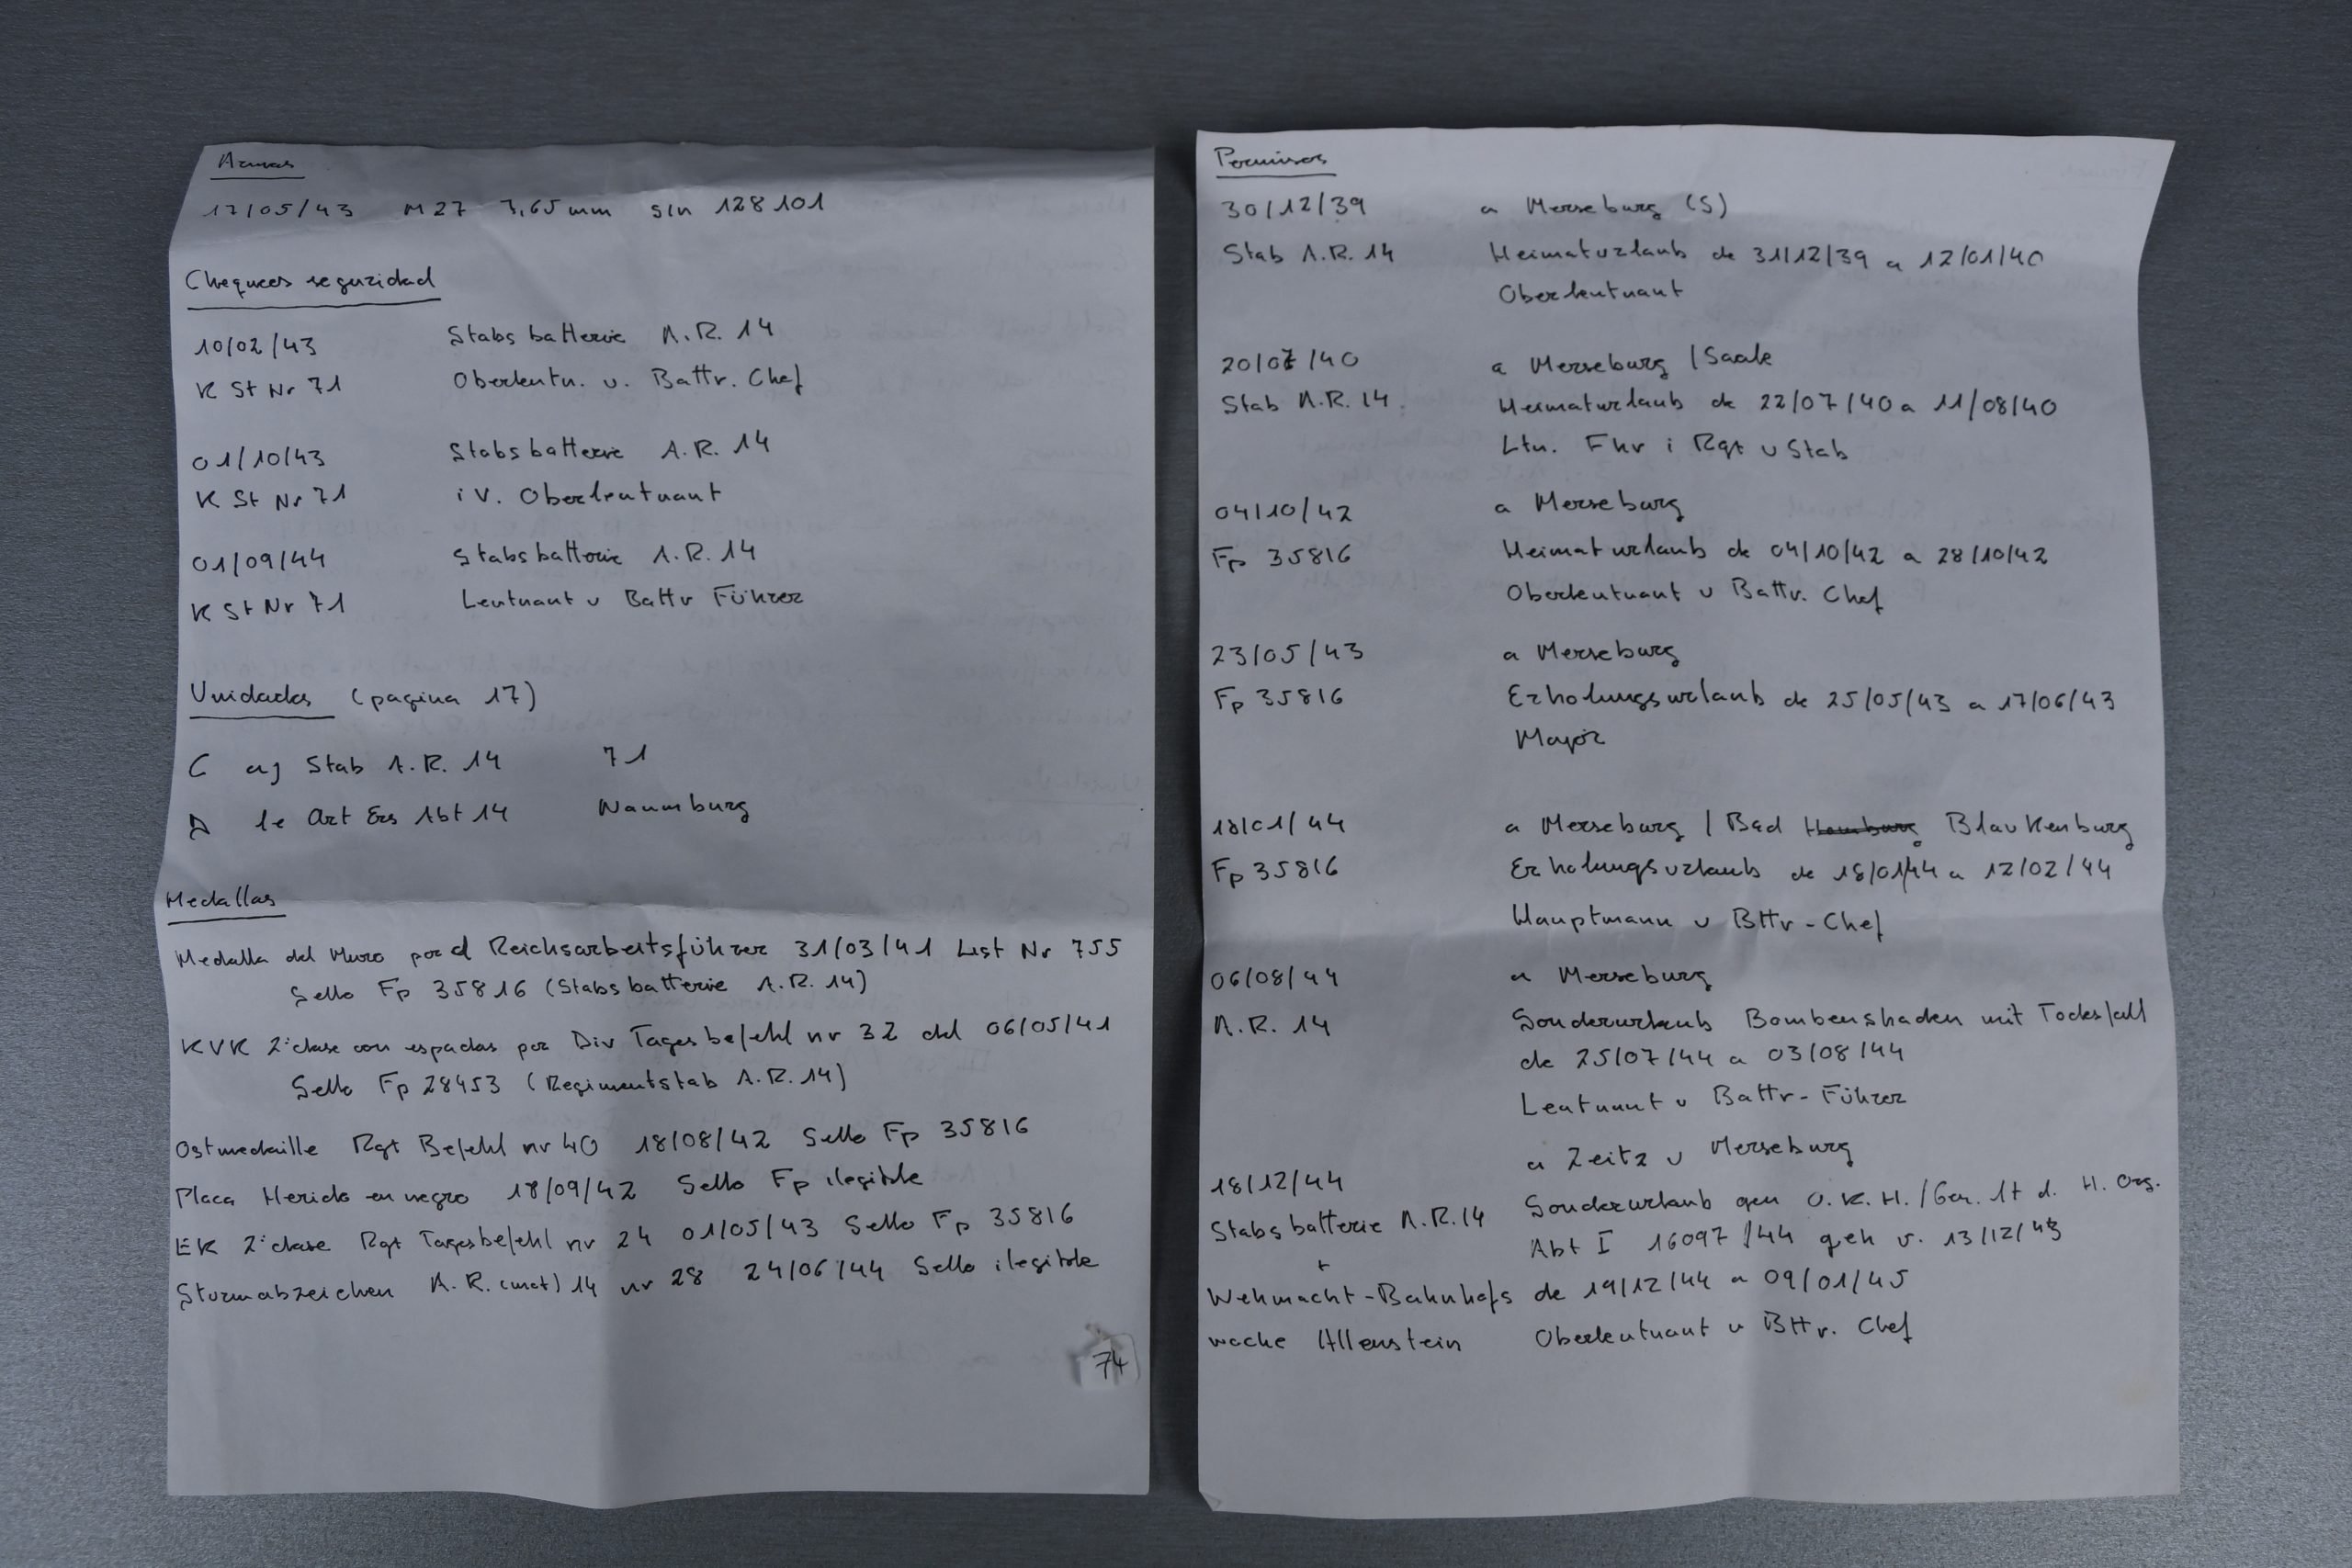 Armas
17/05/43 M27 7,65 mm s/n 128101
Chequeos seguridad
10/02/43 Stabsbatterie A.R. 14
K St Nr 71 Oberleutn. u. Battr. Chef
01/10/43 Stabsbatterie A.R. 14
K St Nr 71 i V. Oberleutnant
01/09/44 Stabsbatterie A.R. 14
K St Nr 71 Leutnant u Battr Führer
Unidades (pagina 17)
C a) Stab A.R. 14 71
D le Art Ers Abt 14 Naumburg
Medallas
Medalla del Muro por el Reichsarbeitsführer 31/03/41 List Nr 755
Sello Fp 35816 (Stabsbatterie A.R. 14)
KVK 2ª clase con espadas por Div Tagesbefehl nr 32 del 06/05/41
Sello Fp 28453 (Regimentstab A.R. 14)
Ostmedaille Rgt Befehl nr 40 18/08/42 Sello Fp 35816
Placa Herido en negro 18/09/42 Sello Fp ilegible
EK 2ª clase Rgt Tagesbefehl nr 24 01/05/43 Sello Fp 35816
Sturmabzeichen A.R. (mot) 14 nr 28 24/06/44 Sello ilegible
74
Permisos
30/12/39 a Merseburg (S)
Stab A.R. 14 Heimaturlaub de 31/12/39 a 12/01/40
Oberleutnant
20/07/40 a Merseburg / Saale
Stab A.R. 14 Heimaturlaub de 22/07/40 a 11/08/40
Ltn. Fhr i Rgt u Stab
04/10/42 a Merseburg
Fp 35816 Heimaturlaub de 04/10/42 a 28/10/42
Oberleutnant u Battr. Chef
23/05/43 a Merseburg
Fp 35816 Erholungsurlaub de 25/05/43 a 17/06/43
Major
18/01/44 a Merseburg / Bad Homburg Blankenburg
Fp 35816 Erholungsurlaub de 18/01/44 a 12/02/44
Hauptmann u Bttr-Chef
06/08/44 a Merseburg
A.R. 14 Sonderurlaub Bombenshaden mit Todesfall
de 25/07/44 a 03/08/44
Leutnant u Battr-Führer
a Zeitz u Merseburg
18/12/44 Sonderurlaub gen O.K.H./Gen. St d. H. Org.
Stabsbatterie A.R. 14 Abt I 16097/44 geh v. 13/12/43
+
Wehmacht-Bahnhofs de 19/12/44 a 09/01/45
wache Allenstein Oberleutnant u Bttr. Chef